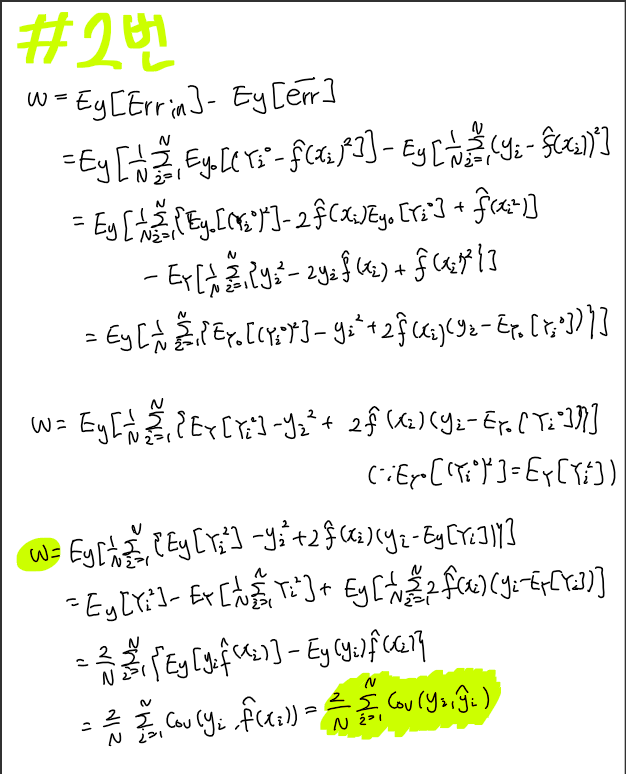 #2번
w = Ey[Err in] - Ey[err̅]
= Ey[1/N Σ_{i=1}^{N} Ey₀[(Yi⁰ - f̂(xi)²]] - Ey[1/N Σ_{i=1}^{N} (yi - f̂(xi))²]
= Ey[1/N Σ_{i=1}^{N} {Ey₀[(Yi⁰)²] - 2f̂(xi)Ey₀[Yi⁰] + f̂(xi²)]
- EY[1/N Σ_{i=1}^{N} {yi² - 2yi f̂(xi) + f̂(xi)²}]
= Ey[1/N Σ_{i=1}^{N} {EY₀[(Yi⁰)²] - yi² + 2f̂(xi)(yi - EY₀[Yi⁰])}]
w = Ey[1/N Σ_{i=1}^{N} {EY[Yi²] - yi² + 2f̂(xi)(yi - EY₀[Yi⁰])}]
(∵ EY⁰[(Yi⁰)²] = EY[Yi²])
w = Ey[1/N Σ_{i=1}^{N} {Ey[Yi²] - yi² + 2f̂(xi)(yi - Ey[Yi])}]
= Ey[Yi²] - EY[1/N Σ_{i=1}^{N} Yi²] + Ey[1/N Σ_{i=1}^{N} 2f̂(xi)(yi - EY[Yi])]
= 2/N Σ_{i=1}^{N} {Ey[yi f̂(xi)] - Ey(yi) f̂(xi)}
= 2/N Σ_{i=1}^{N} Cov(yi, f̂(xi)) = 2/N Σ_{i=1}^{N} Cov(yi, ŷi)